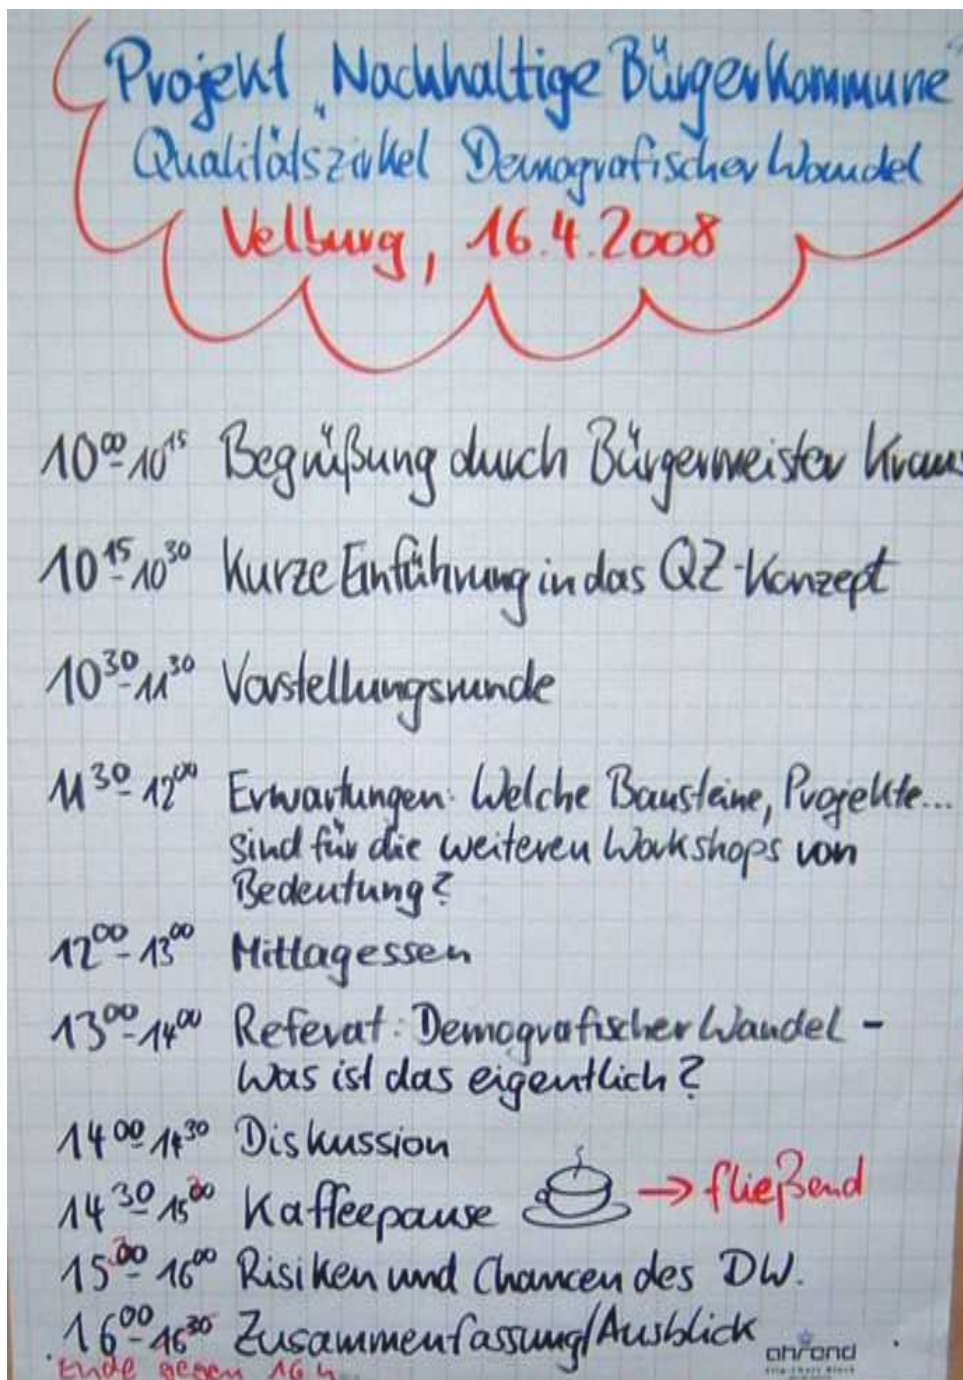 Projekt „Nachhaltige Bürgerkommune“
Qualitätszirkel Demografischer Wandel
Velburg, 16.4.2008
10⁰⁰-10¹⁵ Begrüßung durch Bürgermeister Kraus
10¹⁵-10³⁰ Kurze Einführung in das QZ-Konzept
10³⁰-11³⁰ Vorstellungsrunde
11³⁰-12⁰⁰ Erwartungen: Welche Bausteine, Projekte...
sind für die weiteren Workshops von
Bedeutung?
12⁰⁰-13⁰⁰ Mittagessen
13⁰⁰-14⁰⁰ Referat: Demografischer Wandel -
Was ist das eigentlich?
14⁰⁰-14³⁰ Diskussion
14³⁰-15⁰⁰ Kaffeepause → fließend
15⁰⁰-16⁰⁰ Risiken und Chancen des DW.
16⁰⁰-16³⁰ Zusammenfassung/Ausblick
Ende gegen 16 h
ahrend